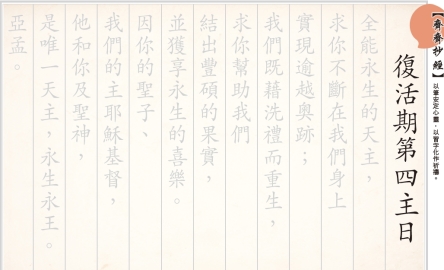 【齊齊抄經】以筆安定心靈，以習字化作祈禱。
復活期第四主日
全能永生的天主，
求你不斷在我們身上
實現逾越奧跡；
我們既藉洗禮而重生，
求你幫助我們
結出豐碩的果實，
並獲享永生的喜樂。
因你的聖子、
我們的主耶穌基督，
他和你及聖神，
是唯一天主，永生永王。
亞孟。